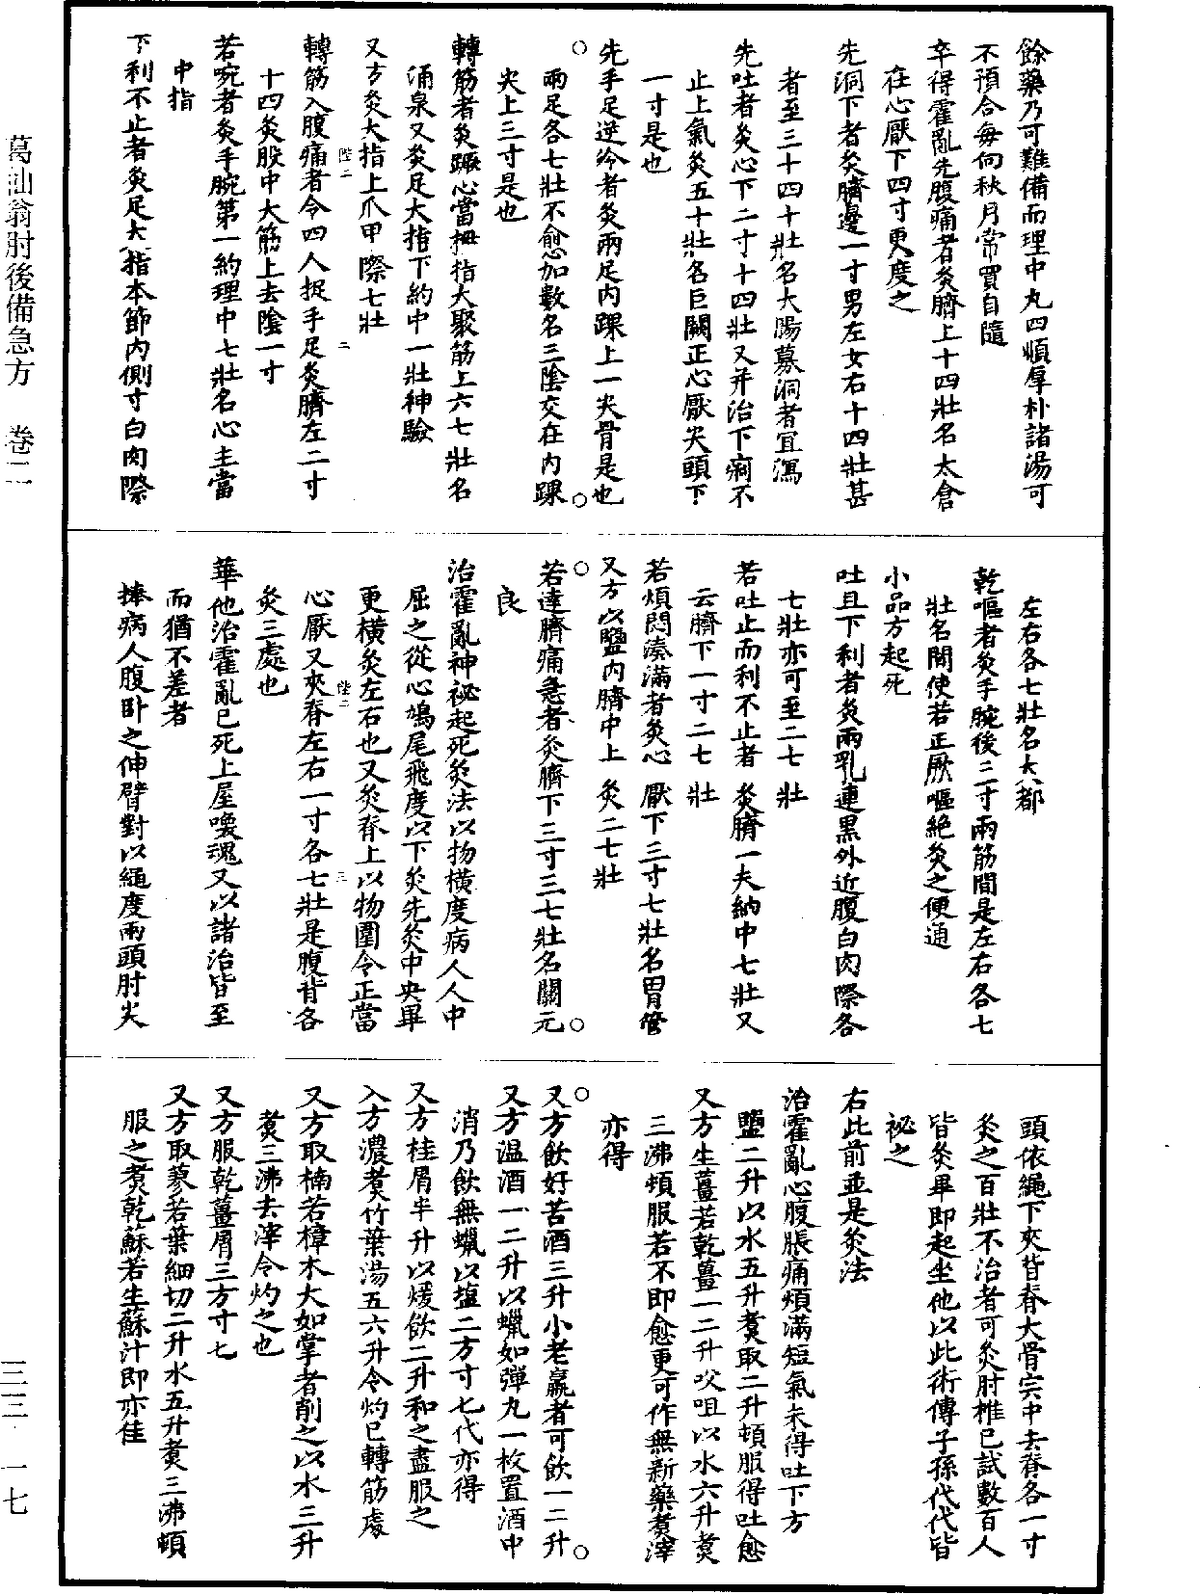 餘藥乃可難備而理中丸四順厚朴諸湯可
不預合每向秋月常買自隨
卒得霍亂先腹痛者灸臍上十四壯名太倉
在心厭下四寸更度之
先洞下者灸臍邊一寸男左女右十四壯甚
者至三十四十壯名大腸募洞者宜瀉
先吐者灸心下二寸十四壯又并治下痢不
止上氣灸五十壯名巨闕正心厭尖頭下
一寸是也
先手足逆冷者灸兩足內踝上一尖骨是也
兩足各七壯不愈加數名三陰交在內踝
尖上三寸是也
轉筋者灸蹶心當拇指大聚筋上六七壯名
涌泉又灸足大指下約中一壯神驗
又方灸大指上爪甲際七壯
轉筋入腹痛者令四人捉手足灸臍左二寸
十四灸股中大筋上去陰一寸
若啘者灸手腕第一約理中七壯名心主當
中指
下利不止者灸足大指本節內側寸白肉際
左右各七壯名大都
乾嘔者灸手腕後三寸兩筋間是左右各七
壯名間使若正厥嘔絕灸之便通
小品方起死
吐且下利者灸兩乳連黑外近腹白肉際各
七壯亦可至二七壯
若吐止而利不止者灸臍一夫納中七壯又
云臍下一寸二七壯
若煩悶湊滿者灸心厭下三寸七壯名胃管
又方以鹽內臍中上灸二七壯
若遶臍痛急者灸臍下三寸三七壯名關元
良
治霍亂神祕起死灸法以物橫度病人人中
屈之從心鳩尾飛度以下灸先灸中央畢
更橫灸左右也又灸脊上以物圍令正當
心厭又夾脊左右一寸各七壯是腹背各
灸三處也
華他治霍亂已死上屋喚魂又以諸治皆至
而猶不差者
捧病人腹臥之伸臂對以繩度兩頭肘尖
頭依繩下夾背脊大骨宍中去脊各一寸
灸之百壯不治者可灸肘椎已試數百人
皆灸畢即起坐他以此術傳子孫代代皆
祕之
右此前並是灸法
治霍亂心腹脹痛煩滿短氣未得吐下方
鹽二升以水五升煮取二升頓服得吐愈
又方生薑若乾薑一二升㕮咀以水六升煮
三沸頓服若不即愈更可作無新藥煮滓
亦得
又方飲好苦酒三升小老羸者可飲一二升
又方温酒一二升以蠟如彈丸一枚置酒中
消乃飲無蠟以塩二方寸七代亦得
又方桂屑半升以煖飲二升和之盡服之
入方濃煮竹葉湯五六升令灼已轉筋處
又方取楠若樟木大如掌者削之以水三升
煮三沸去滓令灼之也
又方服乾薑屑三方寸七
又方取蓼若葉細切二升水五升煮三沸頓
服之煮乾蘇若生蘇汁即亦佳
葛仙翁肘後備急方 卷二
三三·一七